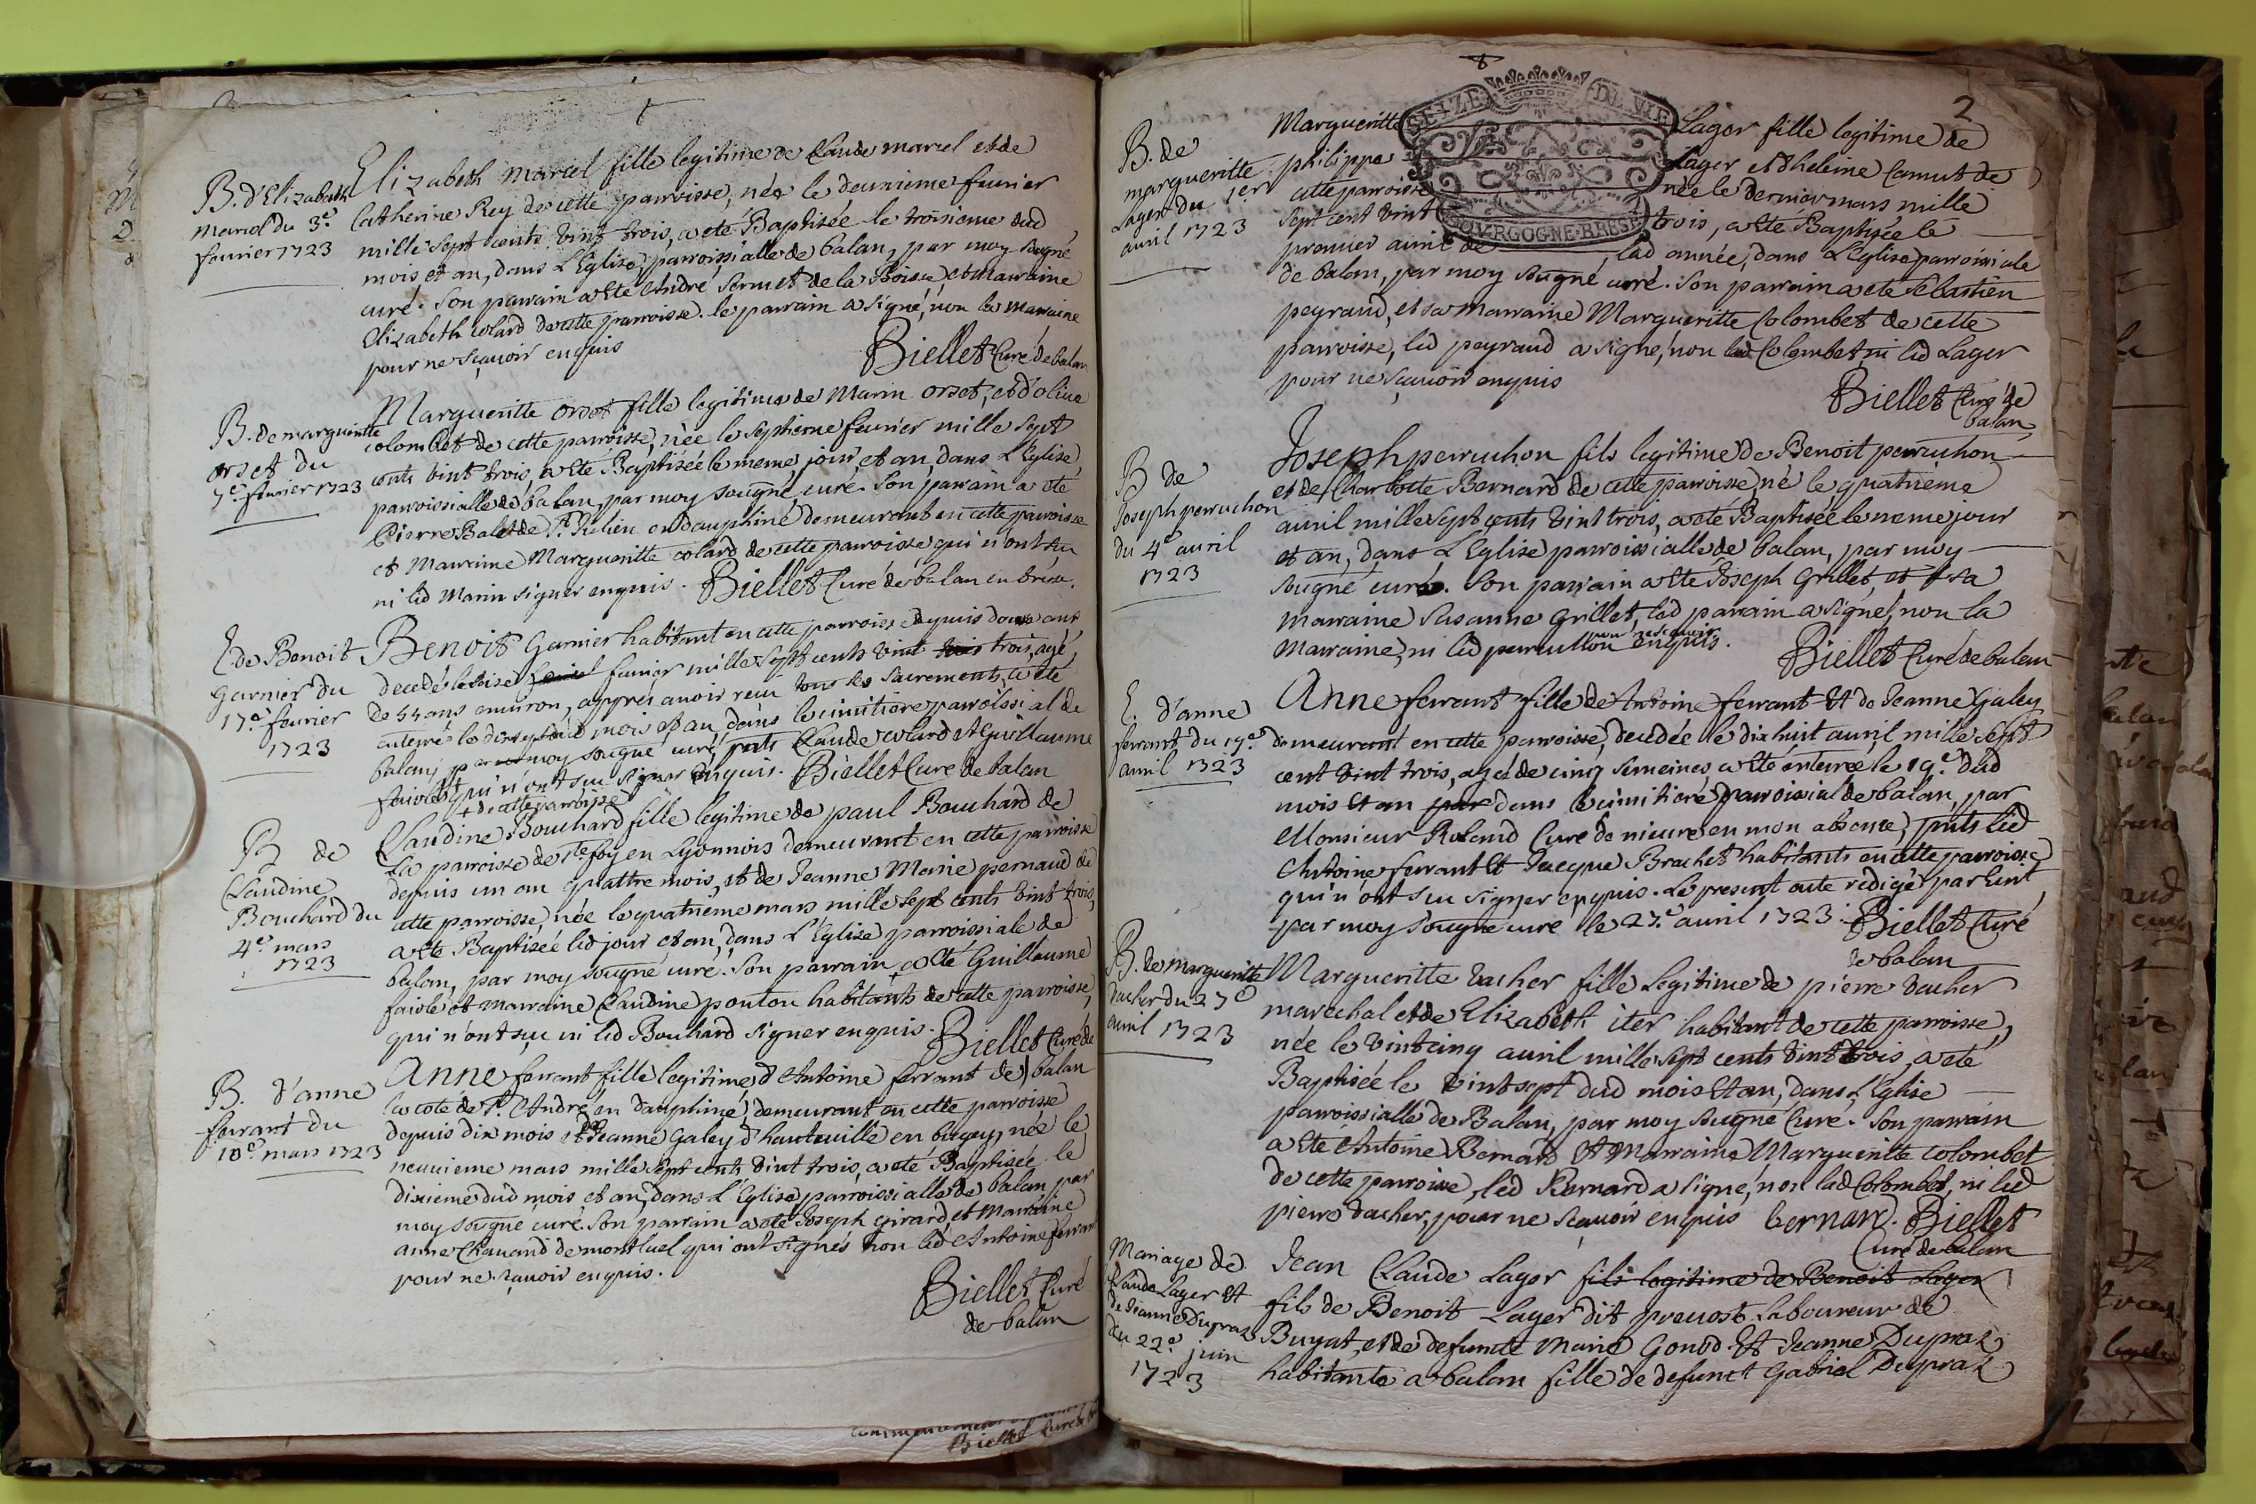 B. d'Elizabeth
mariel du 3.e
feuurier 1723
Elizabeth mariel fille legitime de Claude mariel et de
Catherine Rey de cette parroisse, née le deuxieme feurier
mille sept cents vint trois, a eté Baptisée le troisieme dud
mois et an, dans L'Eglise parroissialle de balan, par moy sougné
curé. Son parrain a eté André Sermet de la Boisse et Marraine
Elizabeth Colard de cette parroisse. le parrain a signé, non la marraine
pour ne sçauoir enquis
Biellet Curé de balan
B. de margueritte
orset du
7.e feurier 1723
Margueritte orset fille legitime de Marin orset, et d'oliue
colombet de cette parroisse, née le septieme feurier mille sept
cents vint trois, a eté Baptisée le meme jour et an, dans L'Eglise
parroissialle de balan, par moy sougné curé. Son parrain a eté
Pierre Balet de St. Julien en dauphiné demeurant en cette parroisse
et Marraine Margueritte colard de cette parroisse qui n'ont su
ni led Marin signer enquis. Biellet Curé de balan en bresse.
E de Benoit
Garnier du
17.e feurier
1723
Benoit Garnier habitant en cette parroisse depuis douze ans
decedé le seize feurier mille sept cents vint trois trois, agé
de 55 ans enuiron, appres auoir receu tous les sacrements, a eté
enterré le dixsept dud mois et an, dans le cimitiere parroissial de
balan, par moy sougné curé, pnts Claude colard et Guillaume
faiole+ qui n'ont sçu signer enquis. Biellet Curé de balan
+ de cette parroisse
B de
Claudine
Bouchard du
4.e mars
1723
Claudine Bouchard fille legitime de paul Bouchard de
La parroisse de Ste foy en Lyonnois demeurant en cette parroisse
depuis un an quattre mois, et de Jeanne Marie pernaud de
cette parroisse, née le quatrieme mars mille sept cents vint trois,
a eté Baptisée led jour et an, dans L'Eglise parroissiale de
balan, par moy sougné curé. Son parrain a eté Guillaume
faiole et marraine Claudine ponton habitants de cette parroisse,
qui n'ont sçu ni led Bouchard signer enquis. Biellet Curé de
balan
B. d'anne
ferrant du
10.e mars 1723
Anne ferrant fille legitime d'Antoine ferrant de
la coté de St. André en dauphiné, demeurant en cette parroisse
depuis dix mois et de Jeanne Galey d'hauteuille en bugey, née le
neuuieme mars mille sept cents vint trois, a eté Baptisée le
dixieme dud mois et an, dans L'Eglise parroissialle de balan par
moy sougné curé. Son parrain a eté Joseph girard, et Marraine
anne Chauand de montluel qui ont signés non led Antoine ferrant
pour ne sçauoir enquis.
Biellet Curé
de balan
Biellet Curé de
2
SEIZE DE VIE
BOURGOGNE·BRESSE
B. de
margueritte
Lager du 1er
auril 1723
Margueritte Lager fille legitime de
philippe Lager et d'heleine Camut de
cette parroisse née le dernier mars mille
sept cent vint trois, a eté Baptisée le
premier auril de lad année, dans L'Eglise parroissiale
de balan, par moy sougné curé. Son parrain a eté Sebastien
peyraud, et sa marraine Margueritte Colombet de cette
parroisse, led peyraud a signé, non lad Colombet ni led Lager
pour ne sçauoir enquis
Biellet Curé de
balan
B de
Joseph perruchon
du 4.e auril
1723
Joseph perruchon fils legitime de Benoit perruchon
et de Charlotte Bernard de cette parroisse, né le quatrieme
auril mille sept cents vint trois, a eté Baptisée le meme jour
et an, dans L'Eglise parroissialle de balan, par moy
sougné curé. Son parrain a eté Joseph Grillet, et sa
marraine Susanne Grillet, led parrain a signé, non la
Marraine, ni led perruchon pour ne sçauoir enquis.
Biellet Curé de balan
E. d'anne
ferrant du 19.e
auril 1723
Anne ferrant fille de Antoine ferrant et de Jeanne Galey
demeurant en cette parroisse, decedée le dix huit auril mille sept
cent vint trois, agée de cinq semeines, a eté enterrée le 19.e dud
mois et an par dans le cimitiere parroissial de balan, par
Monsieur Roland Curé de nieure en mon absence, pnts led
Antoine ferrant et Jacque Brachet habitants en cette parroisse
qui n'ont su signer enquis. Le present acte redigé par Ecrit
par moy sougné curé le 27.e auril 1723. Biellet Curé
de balan
B. de Margueritte
vacher du 27.e
auril 1723
Margueritte vacher fille legitime de pierre vacher
marechal et de Elizabeth iter habitant de cette parroisse,
née le vintcinq auril mille sept cents vint trois, a eté
Baptisée le vintsept dud mois et an, dans L'Eglise
parroissialle de Balan, par moy sougné Curé. Son parrain
a eté Antoine Bernard et Marraine Margueritte colombet
de cette parroisse, led Bernard a signé, non lad Colombet, ni led
pierre vacher, pour ne sçauoir enquis bernard. Biellet
Curé de balan
Mariage de
Claude Lager et
de Jeanne Dupraz
du 22.e juin
1723
Jean Claude Lager fils legitime de Benoit Lager
fils de Benoit Lager dit preuost Laboureur de
Buyat, et de defuncte Marie Gonod. Et Jeanne Dupraz
habitante a balan fille de defunct Gabriel Dupraz